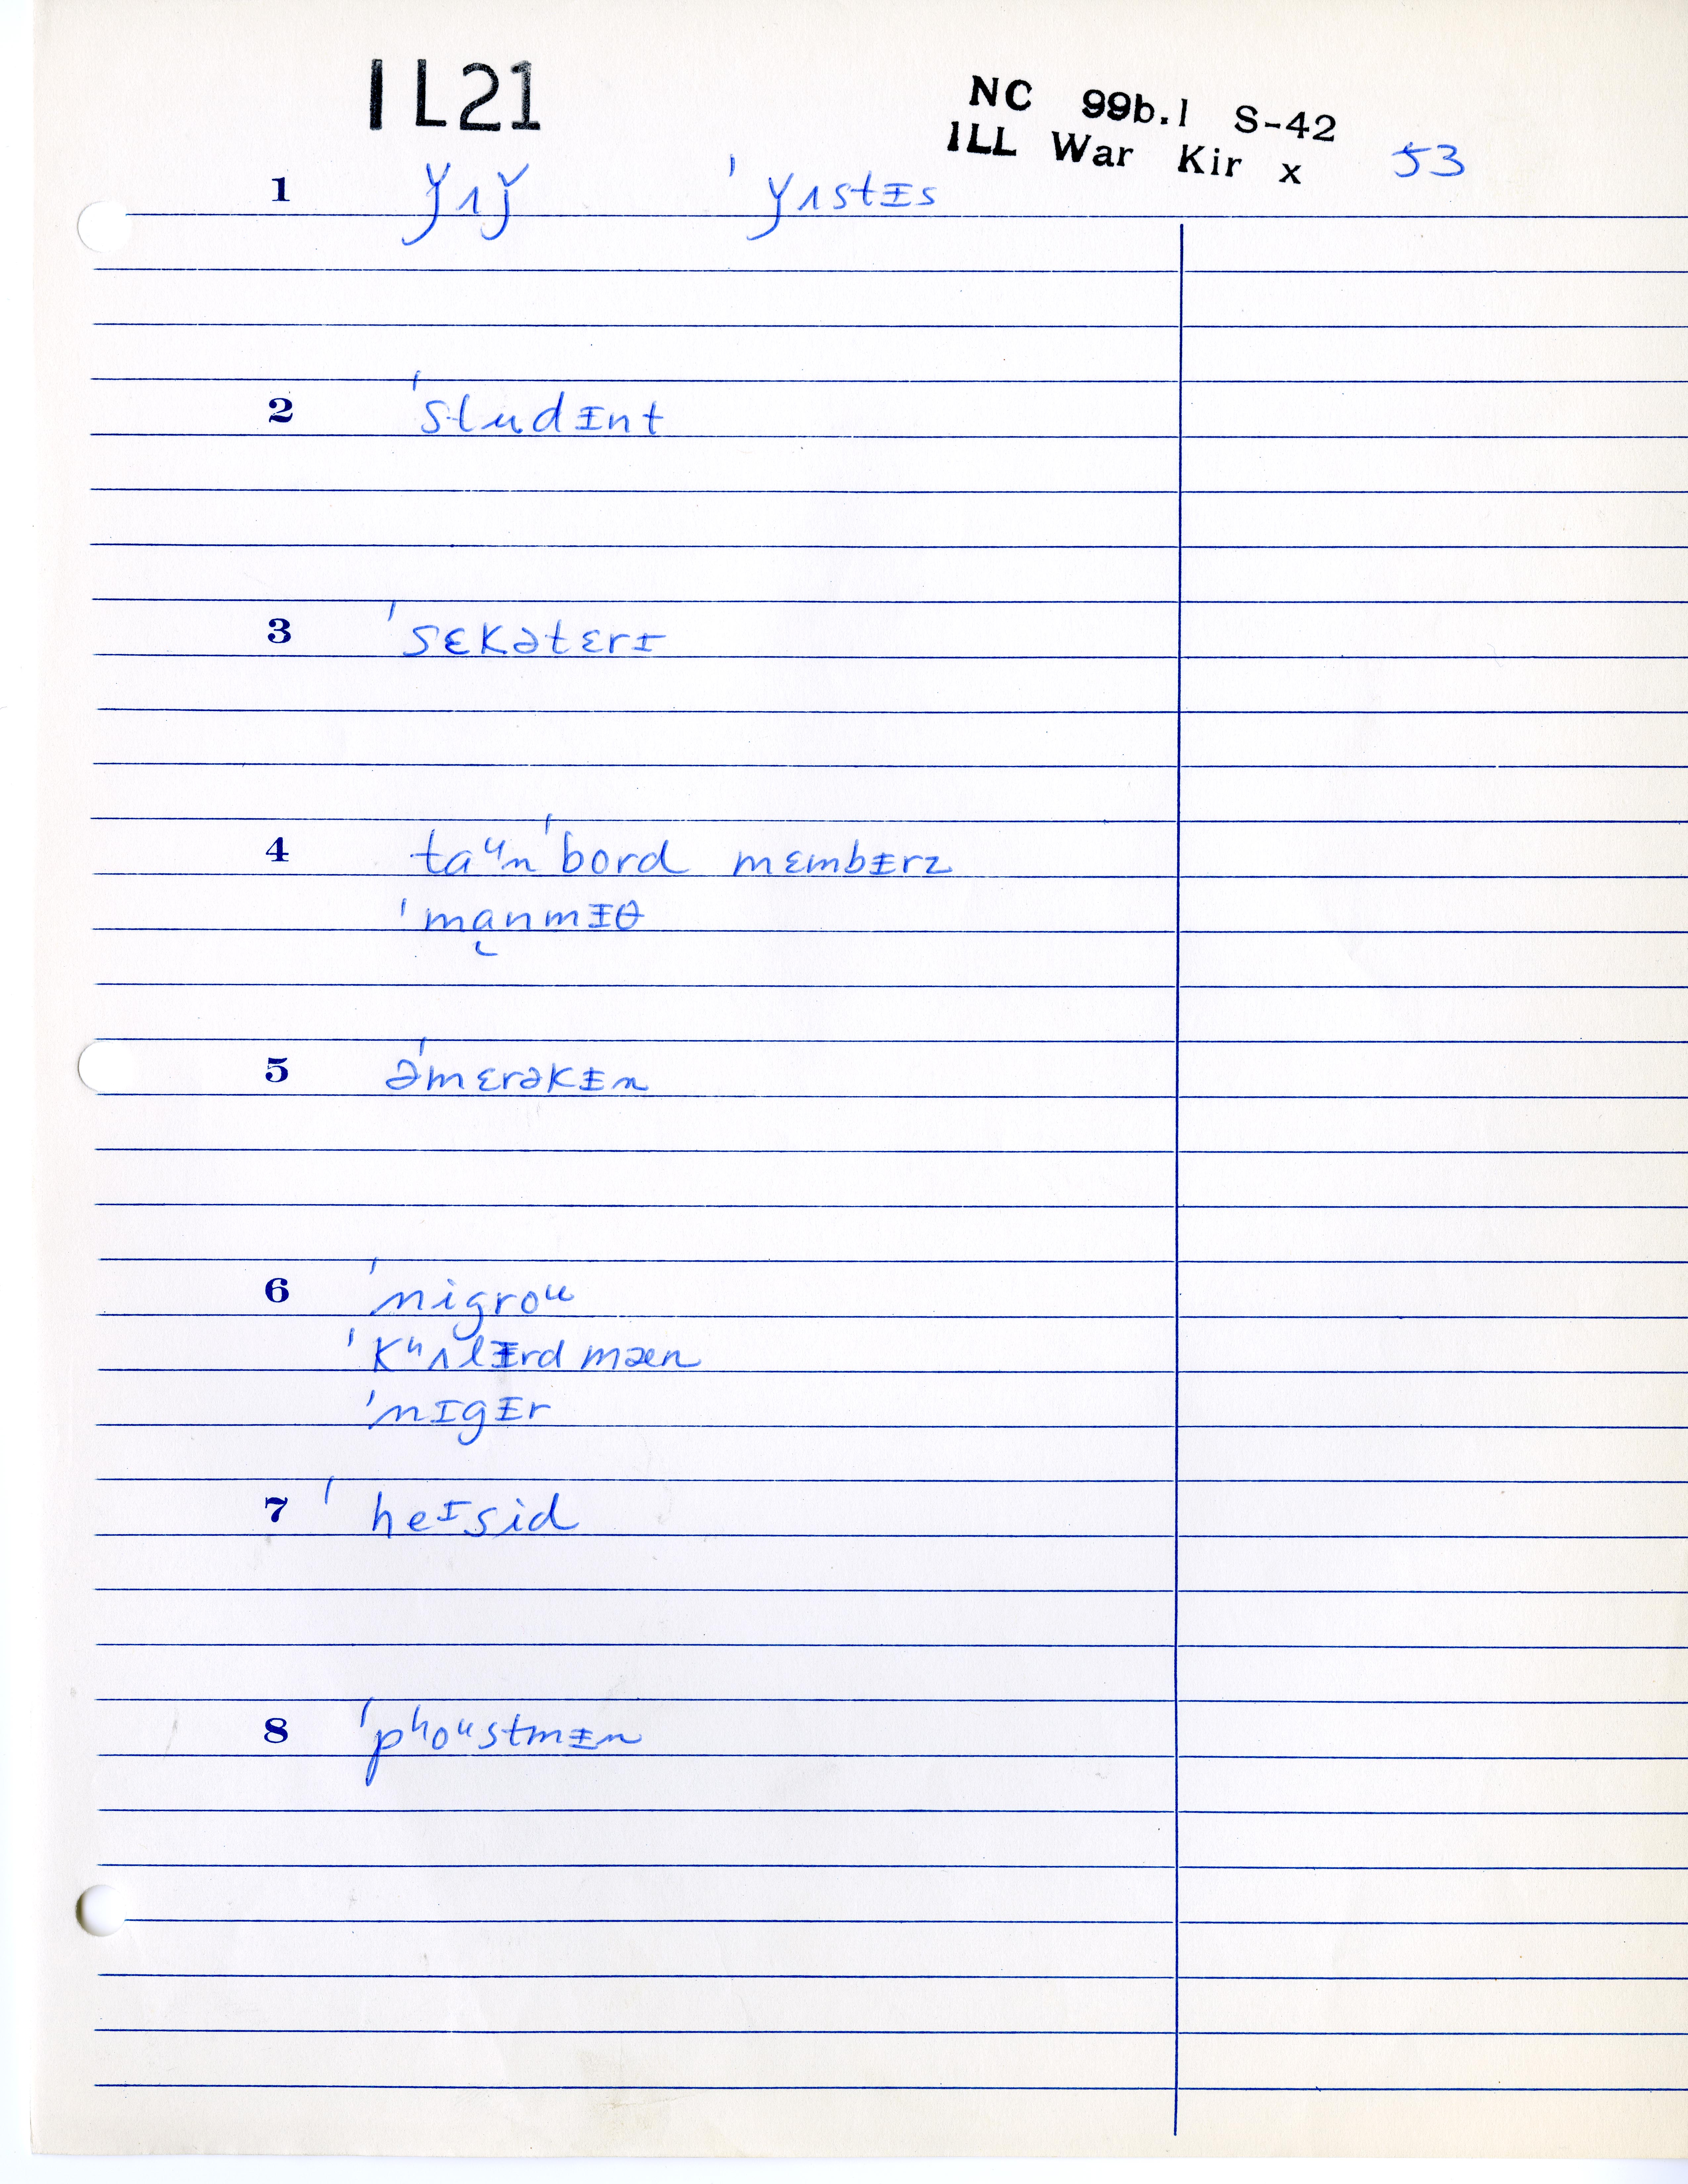 IL21
NC 99b.1 S-42
ILL War Kir x 53
1 ǰʌǰ ˈǰʌstᵻs
2 ˈstudᵻnt
3 ˈsɛkətɛrɪ
4 taᵘnˈbord mɛmbᵻrz
ˈmɑ̨nmɪθ
5 əˈmɛrəkᵻn
6 ˈnigroᵘ
ˈkʰʌlᵻrd mæn
ˈnɪgᵻr
7 ˈheᶦsid
8 ˈpʰoᵘstmᵻn